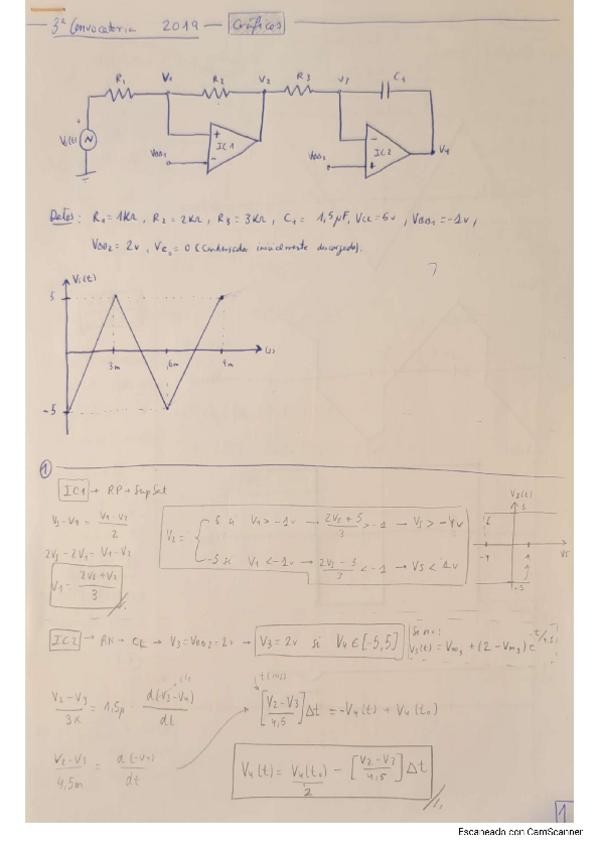 3ª Convocatoria 2019 - Gráficos
R1 V1 R2 V2 R3 V3 C1
Vs(t) + IC1 - VBB1
- IC2 + VBB2 V4
Datos: R1 = 1KΩ, R2 = 2KΩ, R3 = 3KΩ, C1 = 1,5µF, Vcc = 5v, VBB1 = -1v,
VBB2 = 2v, Vc0 = 0 (Condensador inicialmente descargado).
Vs(t)
5
3m 6m 9m (s)
-5
1
IC1 → RP → Sup Sat
Vs - V1 = (V1 - V2)/2
2Vs - 2V1 = V1 - V2
V1 = (2Vs + V2)/3
V2 = { 5 si V1 > -1v → (2Vs + 5)/3 > -1 → Vs > -4v
-5 si V1 < -1v → (2Vs - 5)/3 < -1 → Vs < 1v
V2(t)
5
-4 1 Vs
-5
IC2 → RN → CL → V3 = VBB2 = 2v → V3 = 2v si V4 ∈ [-5,5]
Si no:
V3(t) = Vm3 + (2 - Vm3) e^-t/4,5
(V2 - V3)/3K = 1,5µ · d(V3 - V4)/dt
t(ms)
[(V2 - V3)/4,5] Δt = -V4(t) + V4(t0)
(V2 - V3)/4,5m = d(-V4)/dt
V4(t) = V4(t0) - [(V2 - V3)/4,5] Δt
2
1
Escaneado con CamScanner